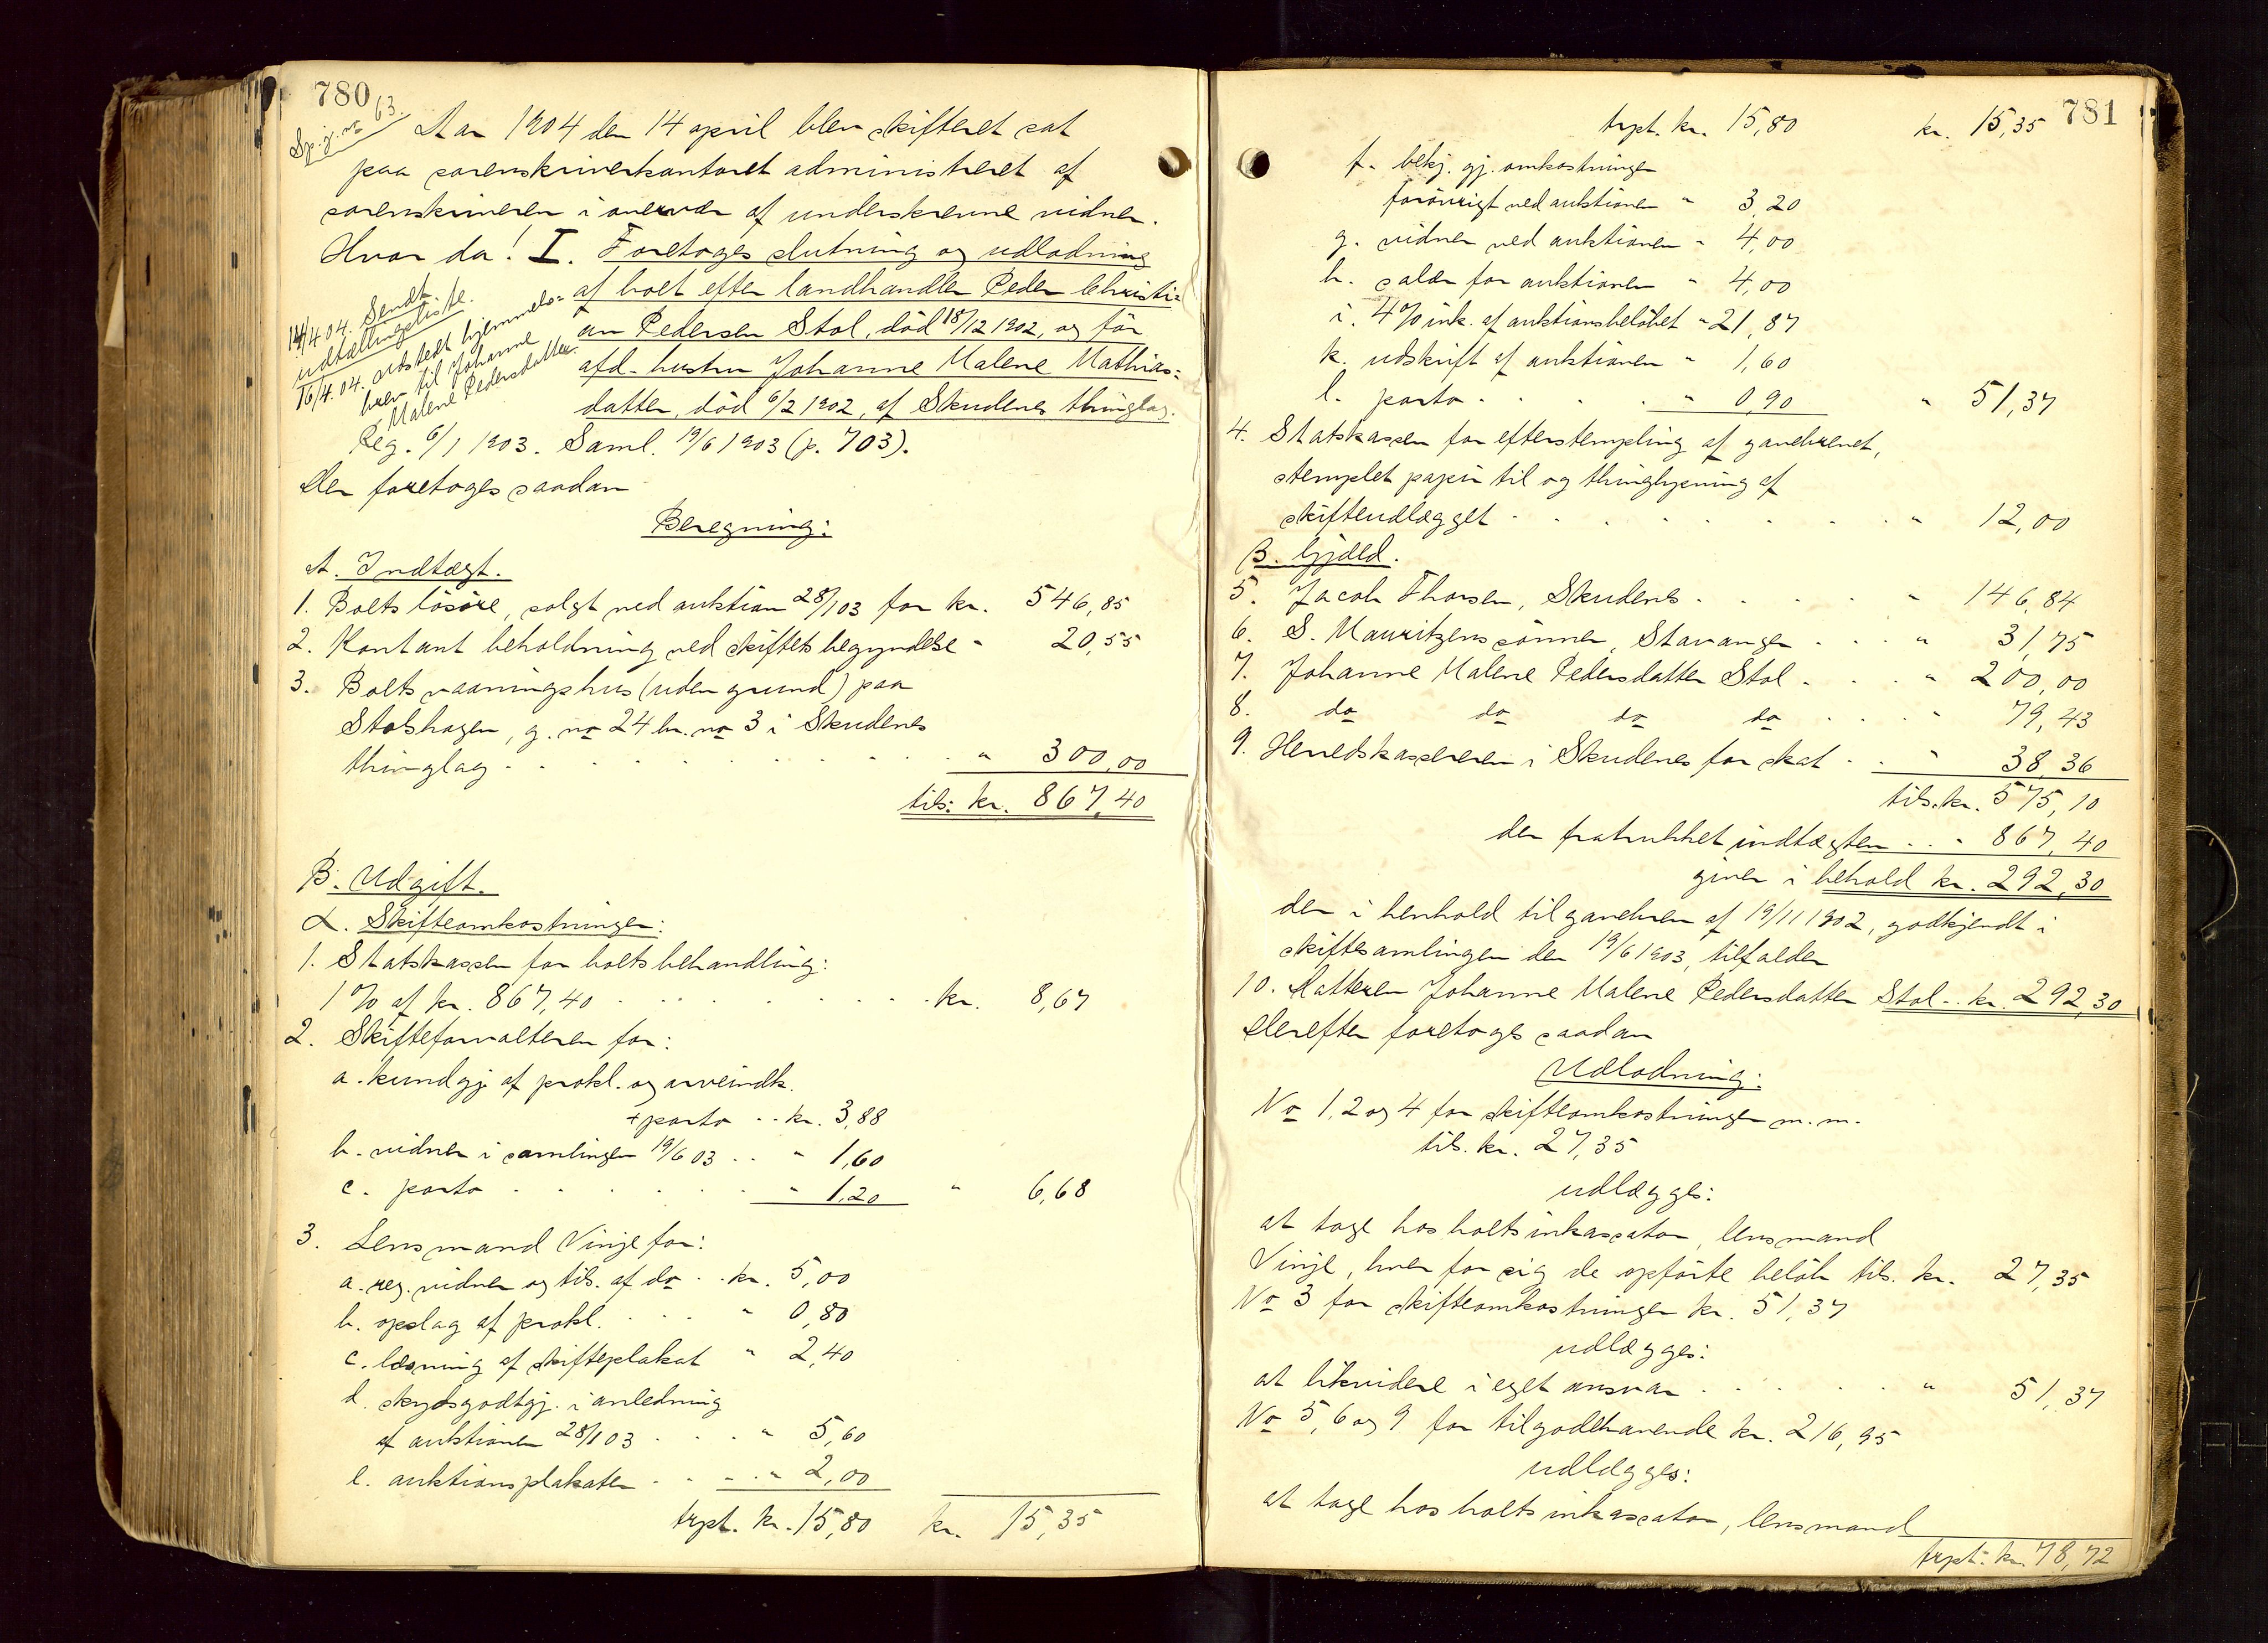 780
Sp. j. no 63.
Aar 1904 den 14 april blev skifteret sat
paa sorenskriverkontoret administreret af
sorenskriveren i overvær af underskrevne vidner.
Hvor da! I. Foretoges slutning og udlodning
af boet efter landhandler Peder Christi=
an Pedersen Stol, död 18/12 1902, og för
afd. hustru Johanne Malene Mathias=
datter, död 6/2 1902, af Skudenes thinglag.
14/4 04. Sendt
udtællingsliste.
16/4.04. udstedt hjemmels=
brev til Johanne
Malene Pedersdatter.
Reg. 6/1 1903. Saml. 19/6 1903 (p. 703).
Der foretoges saadan
Beregning:
A. Indtægt.
1. Boets lösöre, solgt ved auktion 28/1 03 for kr. 546,85
2. Kontant beholdning ved skiftets begyndelse " 20,55
3. Boets vaaningshus (uden grund) paa
Stolshagen, g. no 24 br. no 3 i Skudenes
thinglag . . . . . . " 300,00
tils: kr. 867,40
B. Udgift.
α. Skifteomkostninger:
1. Statskassen for boets behandling:
1% af kr. 867,40 . . . . . . kr. 8,67
2. Skifteforvalteren for:
a. kundgj. af prokl. og arveindk.
+ porto . . kr. 3,88
b. vidner i samlingen 19/6 03 . . " 1,60
c. porto . . . . . " 1,20 " 6,68
3. Lensmand Vinje for:
a. reg. vidner og tils. af do . . kr. 5,00
b. opslag af prokl. . . . " 0,80
c. læsning af skifteplakat " 2,40
d. skydsgodtgj. i anledning
af auktionen 28/1 03 . . . " 5,60
e. auktionsplakater . . . " 2,00
trpt. kr. 15,80 kr. 15,35
781
trpt. kr. 15,80 kr. 15,35
f. bekj. gj. omkostninger
forövrigt ved auktionen " 3,20
g. vidner ved auktionen " 4,00
h. salær for auktionen " 4,00
i. 4% ink. af auktionsbelöbet " 21,87
k. udskrift af auktionen " 1,60
l. porto . . . . " 0,90 " 51,37
4. Statskassen for efterstempling af gavebrevet,
stemplet papir til og thinglysning af
skifteudlægget . . . . . . " 12,00
β. Gjæld.
5. Jacob Thorsen, Skudenes . . . . " 146,84
6. S. Mauritzens sönner, Stavanger . . . " 31,75
7. Johanne Malene Pedersdatter Stol . . . " 200,00
8. do do do do . . . " 79,43
9. Herredskassereren i Skudenes for skat . . " 38,36
tils. kr. 575,10
der fratrukket indtægten . . " 867,40
giver i behold kr. 292,30
der i henhold til gavebrev af 19/11 1902, godkjendt i
skiftesamlingen den 19/6 1903, tilfalder
10. Datteren Johanne Malene Pedersdatter Stol . . kr. 292,30
Derefter foretoges saadan
Udlodning:
No 1, 2 og 4 for skifteomkostninger m. m.
tils. kr. 27,35
udlægges:
at tage hos boets inkassator, lensmand
Vinje, hver for sig de opförte belöb tils. kr. 27,35
No 3 for skifteomkostninger kr. 51,37
udlægges:
at likvidere i eget ansvar . . . . . " 51,37
No 5, 6 og 9 for tilgodehavende kr. 216,95
udlægges:
at tage hos boets inkassator, lensmand
trpt. kr. 78,72